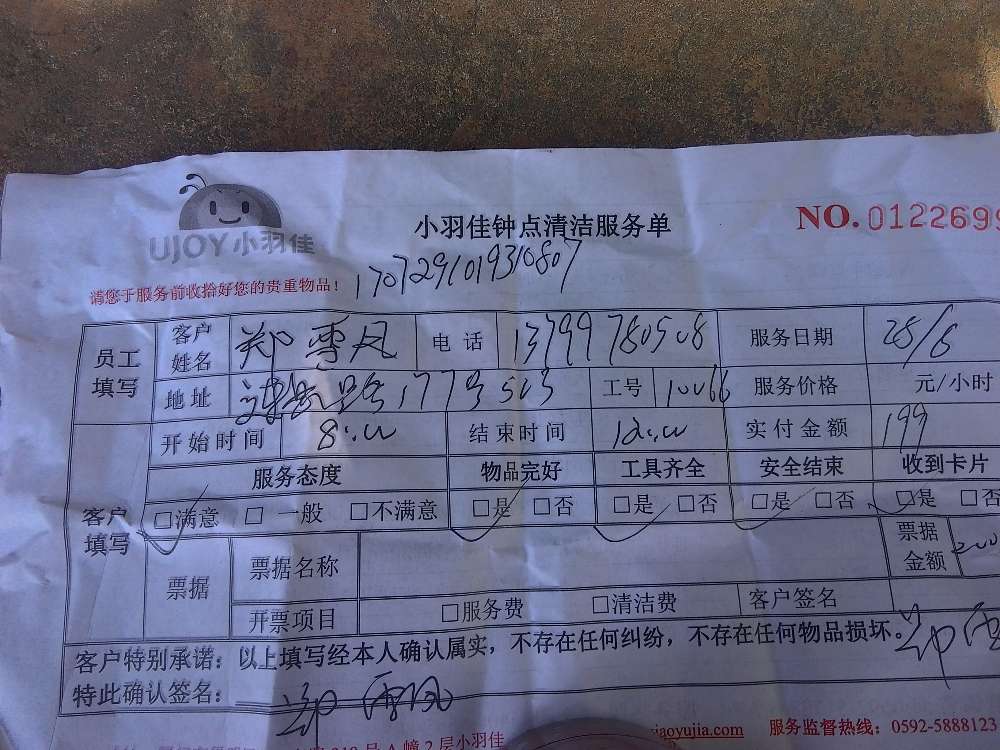 UJOY小羽佳
小羽佳钟点清洁服务单
NO.0122699
请您于服务前收拾好您的贵重物品!
1707291019310807
员工填写 客户姓名 郑雪凤 电话 13799780508 服务日期 28/6
地址 177号503 工号 10066 服务价格 元/小时
客户填写 开始时间 8:00 结束时间 12:00 实付金额 199
服务态度 物品完好 工具齐全 安全结束 收到卡片
□满意 □一般 □不满意 □是 □否 □是 □否 □是 □否 □是 □否
票据 票据名称 票据金额 200
开票项目 □服务费 □清洁费 客户签名
客户特别承诺：以上填写经本人确认属实，不存在任何纠纷，不存在任何物品损坏。
特此确认签名：郑雪凤
号A幢2层小羽佳 xiaoyujia.com 服务监督热线：0592-5888123